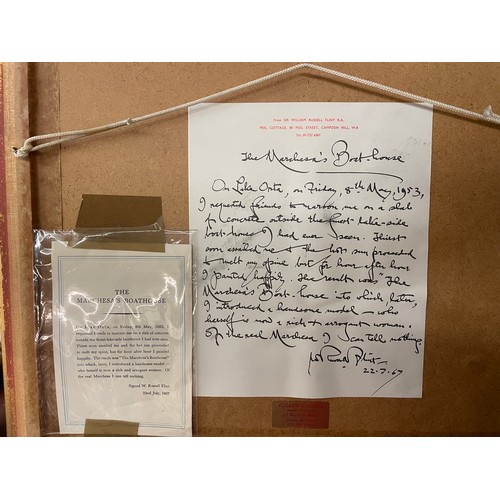 From SIR WILLIAM RUSSELL FLINT R.A.
PEEL COTTAGE, 80 PEEL STREET, CAMPDEN HILL, W.8
The Marchesa's Boat-house
On Lake Orta, on Friday, 8th May, 1953,
I requested friends to maroon me on a slab
of concrete outside the finest lake-side
boat-house I had ever seen. Thirst
soon assailed me & the hot sun proceeded
to melt my spine but for hour after hour
I painted happily. The result was "The
Marchesa's Boat-house into which, later,
I introduced a handsome model – who
herself is now a rich & arrogant woman.
Of the real Marchesa I can tell nothing.
W Russell Flint –
22-7-67
THE
MARCHESA'S BOATHOUSE
On Lake Orta, on Friday, 8th May, 1953, I
requested friends to maroon me on a slab of concrete
outside the finest lake-side boathouse I had ever seen.
Thirst soon assailed me and the hot sun proceeded
to melt my spine, but for hour after hour I painted
happily. The result was "The Marchesa's Boathouse"
into which, later, I introduced a handsome model—
who herself is now a rich and arrogant woman. Of
the real Marchesa I can tell nothing.
Signed W. Russell Flint
22nd July, 1967